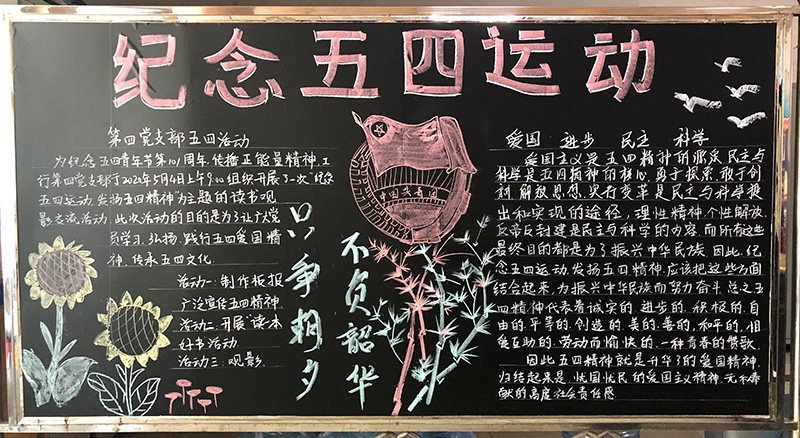 纪念五四运动
第四党支部五四活动
为纪念五四青年节第101周年,传播正能量精神,工
行第四党支部于2020年5月4日上午9:00组织开展了一次"纪念
五四运动,发扬五四精神"为主题的读书观
影交流活动,此次活动的目的是为了让广大党
员学习、弘扬、践行五四爱国精
神,传承五四文化.
活动一:制作板报
广泛宣传五四精神
活动二:开展"读本
好书活动.
活动三:观影.
只争朝夕
不负韶华
中国共青团
爱国 进步 民主 科学
爱国主义是五四精神的源泉,民主与
科学是五四精神的核心,勇于探索、敢于创
新、解放思想、实行变革是民主与科学提
出和实现的途径,理性精神、个性解放、
反帝反封建是民主与科学的内容.而所有这些
最终目的都是为了振兴中华民族.因此,纪
念五四运动、发扬五四精神,应该把这些方面
结合起来,为振兴中华民族而努力奋斗.总之,五
四精神代表着诚实的、进步的、积极的、自
由的、平等的、创造的、美的、善的、和平的、相
爱互助的、劳动而愉快的,一种青春的赞歌.
因此五四精神就是升华了的爱国精神,
归结起来是:忧国忧民的爱国主义精神,无私奉
献的高度社会责任感